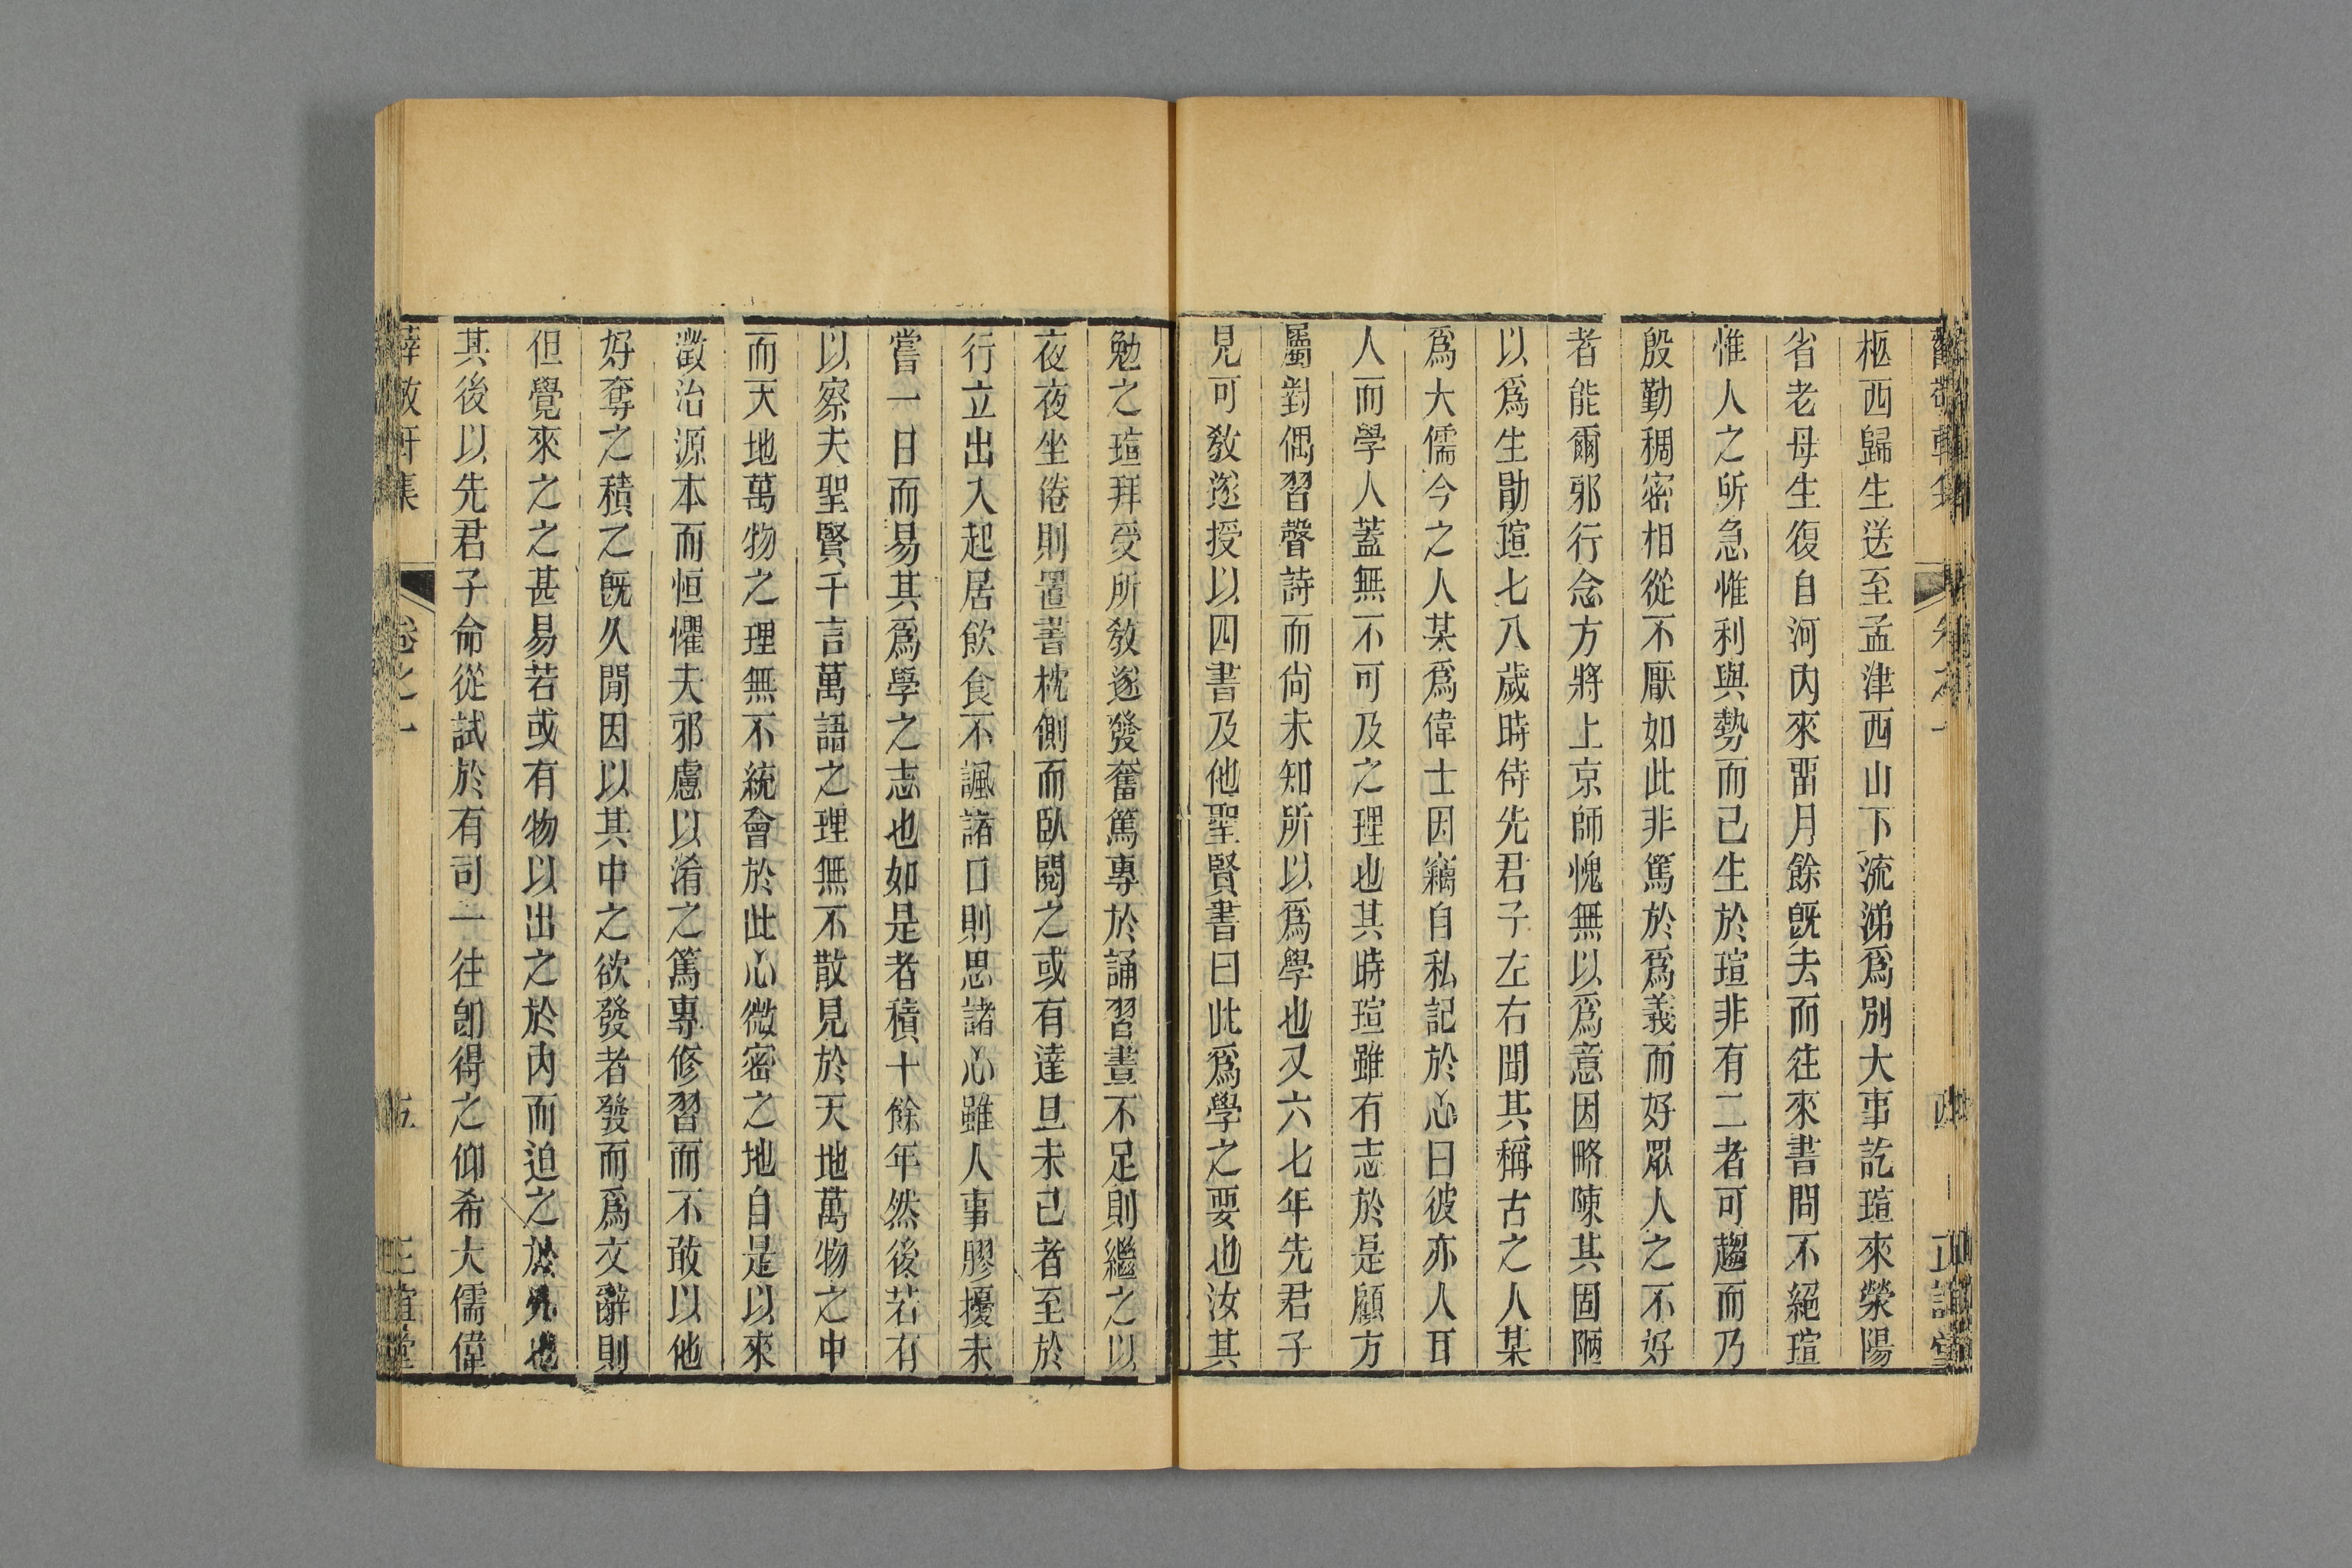 薛敬軒集 卷之一 四 正誼堂
柩西歸生送至孟津西山下流涕爲別大事訖瑄來滎陽
省老母生復自河內來畱月餘旣去而往來書問不絕瑄
惟人之所急惟利與勢而已生於瑄非有二者可趨而乃
殷勤稠密相從不厭如此非篤於爲義而好眾人之不好
者能爾邪行念方將上京師愧無以爲意因略陳其固陋
以爲生勖瑄七八歲時侍先君子左右聞其稱古之人某
爲大儒今之人某爲偉士因竊自私記於心曰彼亦人耳
人而學人蓋無不可及之理也其時瑄雖有志於是顧方
屬對偶習聲詩而尙未知所以爲學也又六七年先君子
見可敎遂授以四書及他聖賢書曰此爲學之要也汝其
勉之瑄拜受所敎遂發奮篤專於誦習晝不足則繼之以
夜夜坐倦則置書枕側而臥閱之或有達旦未已者至於
行立出入起居飮食不諷諸口則思諸心雖人事膠擾未
嘗一日而易其爲學之志也如是者積十餘年然後若有
以察夫聖賢千言萬語之理無不散見於天地萬物之中
而天地萬物之理無不統會於此心微密之地自是以來
澂治源本而恒懼夫邪慮以淆之篤專修習而不敢以他
好奪之積之旣久閒因以其中之欲發者發而爲文辭則
但覺來之之甚易若或有物以出之於內而迫之於外也
其後以先君子命從試於有司一往卽得之仰希大儒偉
薛敬軒集 卷之一 五 正誼堂